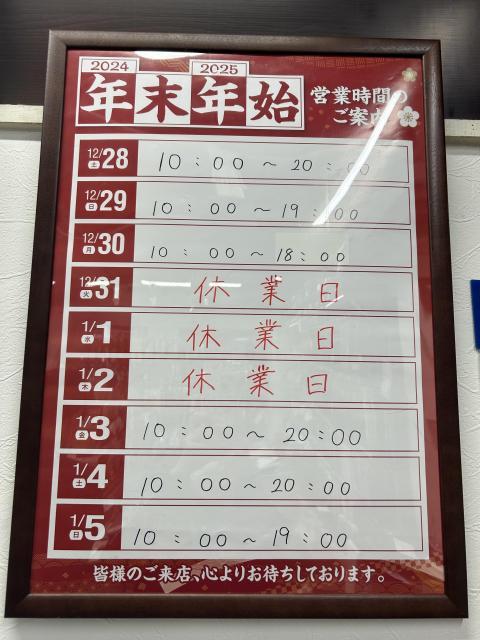 2024 2025
年末年始
営業時間の
ご案内
12/28 土 10:00～20:00
12/29 日 10:00～19:00
12/30 月 10:00～18:00
12/31 火 休業日
1/1 水 休業日
1/2 木 休業日
1/3 金 10:00～20:00
1/4 土 10:00～20:00
1/5 日 10:00～19:00
皆様のご来店、心よりお待ちしております。